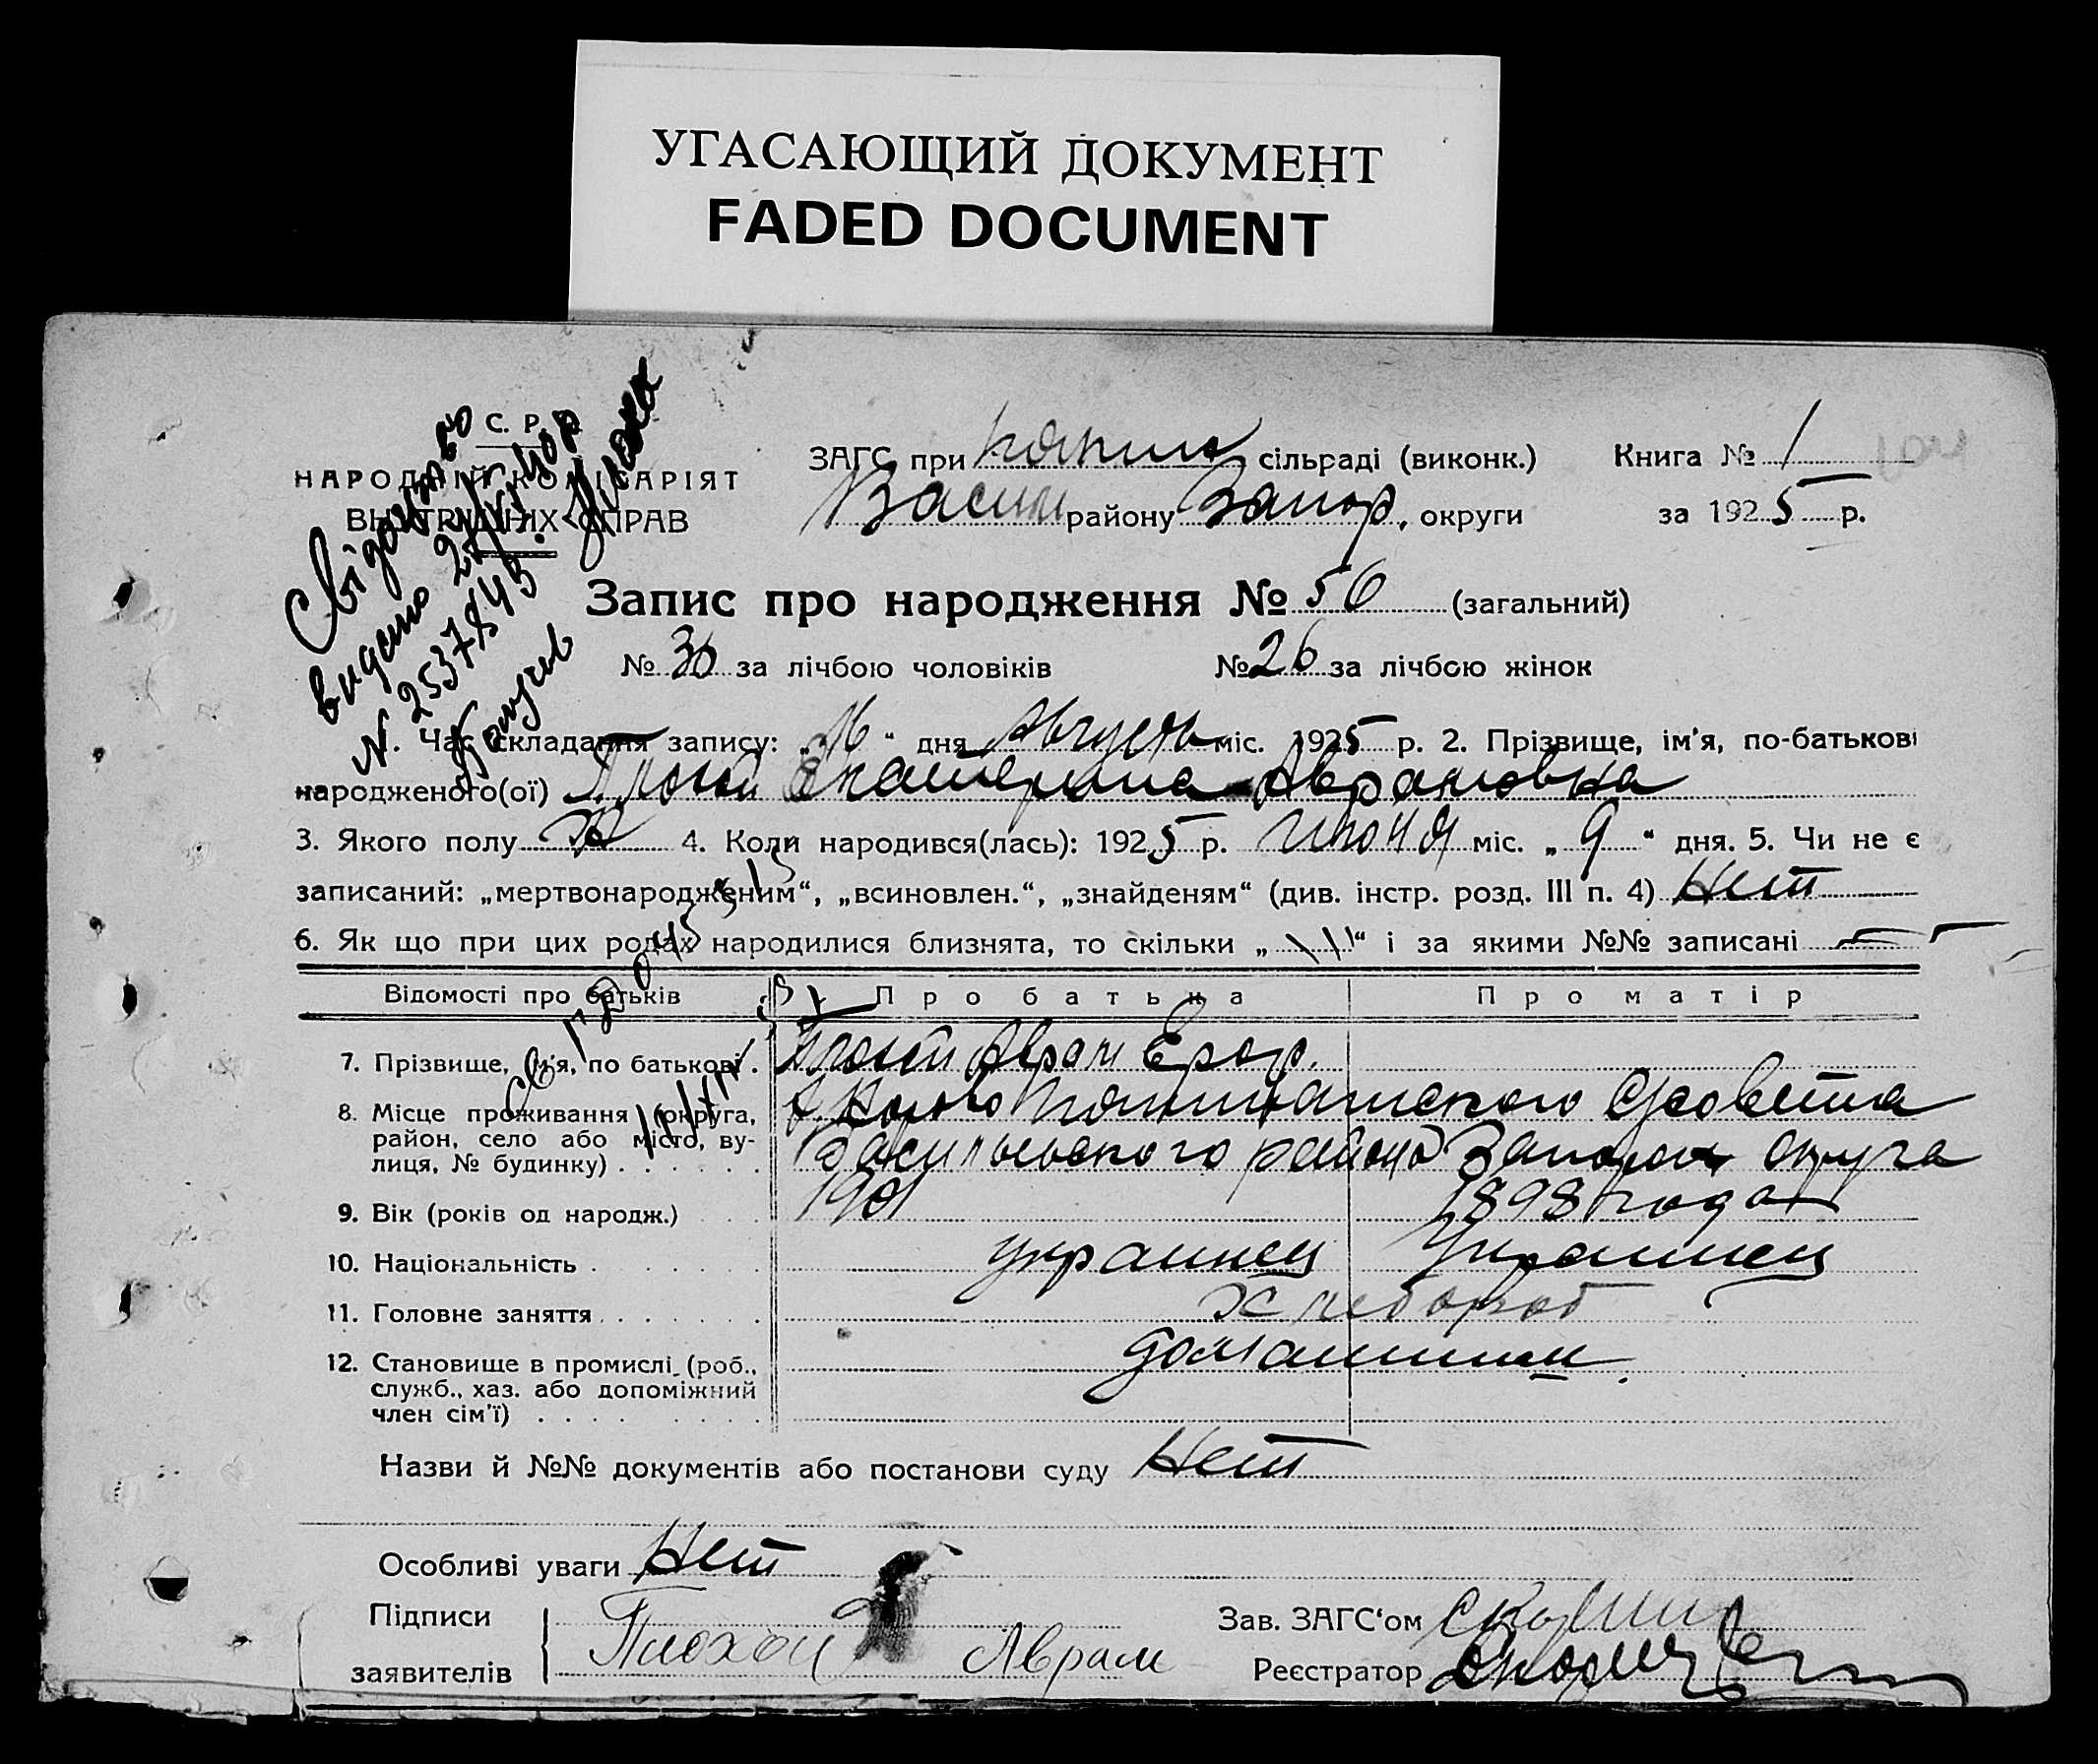 УГАСАЮЩИЙ ДОКУМЕНТ
FADED DOCUMENT
С. Р.
НАРОДНІЙ КОМІСАРІЯТ
ВНУТРІШНІХ СПРАВ
Свідоцтво
видано
N. 253784
ЗАГС при сільраді (виконк.) Книга № 1
Васил району Запор. округи за 1925 р.
Запис про народження № 56 (загальний)
№ 30 за лічбою чоловіків № 26 за лічбою жінок
1. Час складання запису: „16“ дня Августа міс. 1925 р. 2. Прізвище, ім'я, по-батькові
народженого(ої) Плохой Екатерина Аврамовна
3. Якого полу ж 4. Коли народився(лась): 1925 р. Июня міс. „9“ дня. 5. Чи не є
записаний: „мертвонародженим“, „всиновлен.“, „знайденям“ (див. інстр. розд. III п. 4) Нет
6. Як що при цих родах народилися близнята, то скільки „ “ і за якими №№ записані —
Відомості про батьків Про батька Про матір
7. Прізвище, ім'я, по батькові. Плохой Аврам Егор.
8. Місце проживання (округа, район, село або місто, вулиця, № будинку) Сусовета
Васильевского района Запорож округа
9. Вік (років од народж.) 1901 1898 года
10. Національність украинец Украинец
11. Головне заняття Хлебороб
12. Становище в промислі (роб., домашним
служб., хаз. або допоміжний
член сім'ї)
Назви й №№ документів або постанови суду Нет
Особливі уваги Нет
Підписи
заявителів Плохой Аврам
Зав. ЗАГС'ом
Реєстратор